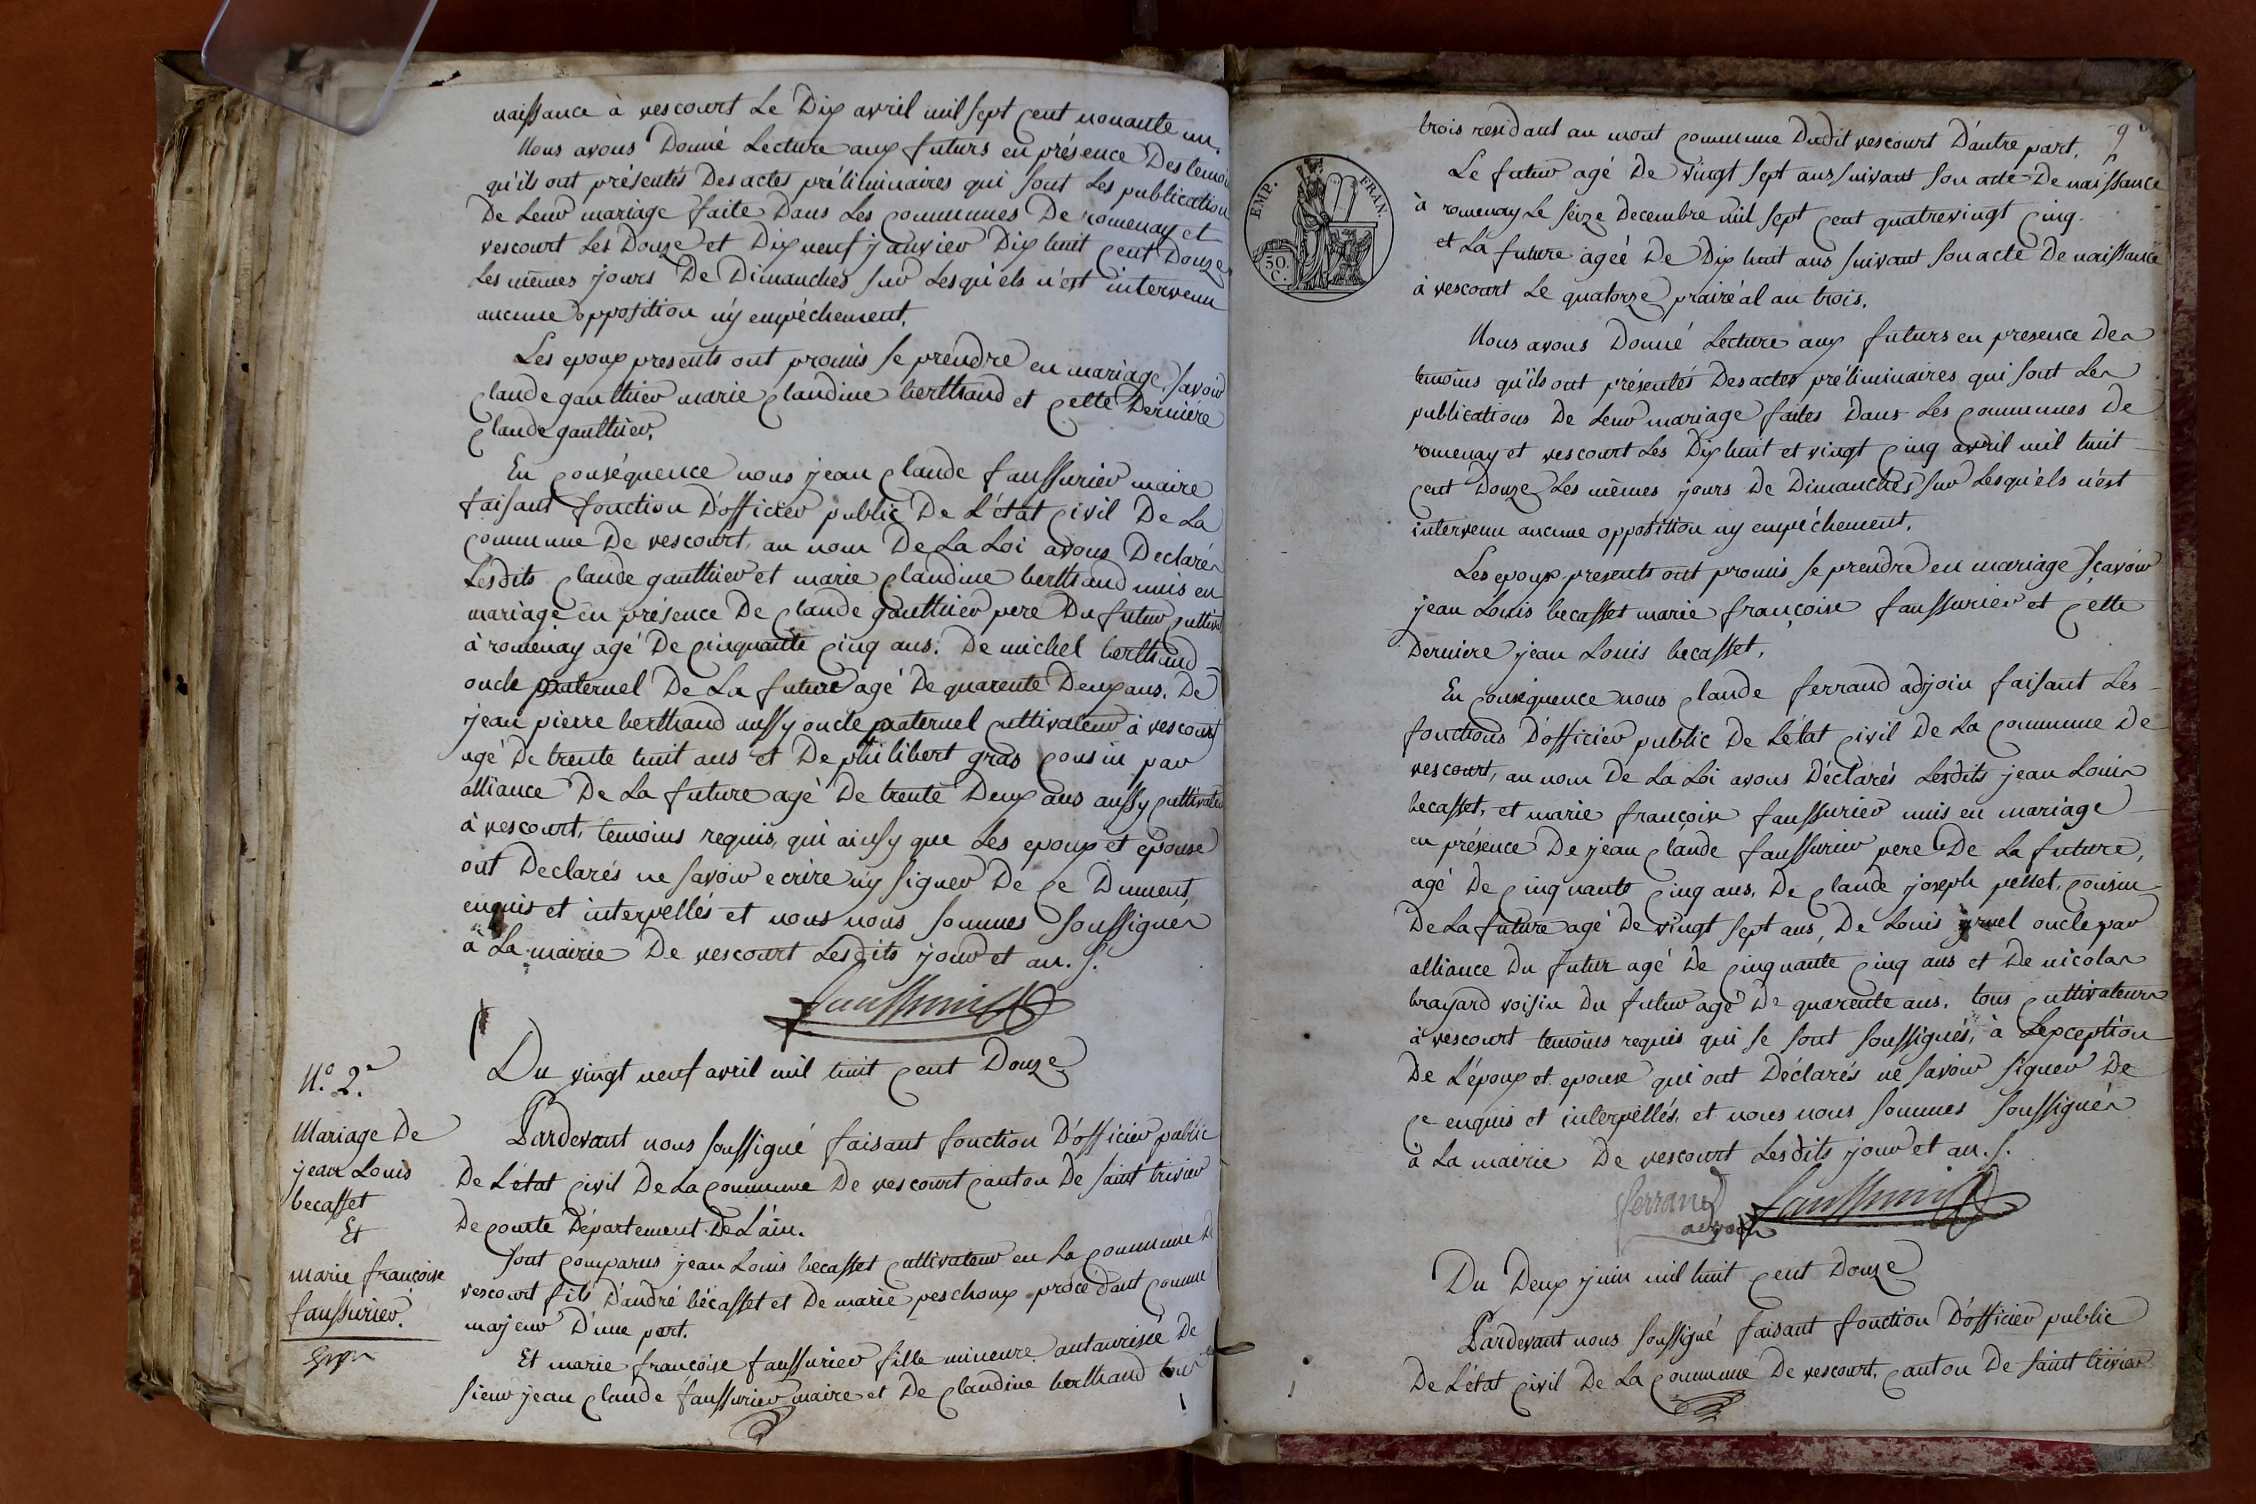 naissance à vescourt Le Dix avril mil sept cent nonante un.
Nous avons Donné Lecture aux futurs en présence Des temoi
qu'ils ont présentés Des actes préliminaires qui sont Les publication
De Leur mariage faite Dans Les communes De romenay et
vescourt Les Douze et Dix neuf janvier Dix huit cent Douze
Les mêmes jours De Dimanches sur Lesquels n'est intervenu
aucune opposition ny empéchement.
Les epoux presents ont promis se prendre en mariage, savoir
Claude gauthier marie Claudine berthand et cette Derniére
Claude gauthier.
En conséquence nous jean Claude faussurier maire
faisant fonction D'officier public De L'état civil De La
commune De vescourt, au nom De La Loi avons Declarés
Lesdits Claude gauthier et marie Claudine berthand unis en
mariage en présence De Claude gauthier pere Du futur cultiva
à romenay agé De cinquante cinq ans. De michel berthand
oncle paternel De La future agé De quarente Deux ans. De
jean pierre berthand aussy oncle paternel cultivateur à vescourt
agé De trente huit ans et De philibert gras cousin par
alliance De La future agé De trente Deux ans aussy cultivateu
à vescourt, temoins requis, qui ainsy que Les epoux et epouse
ont Declarés ne savoir ecrire ny signer De ce Dument
enquis et interpellés et nous nous sommes soussignés
à La mairie De vescourt Lesdits jour et an. /.
faussurier
N.º 2.e
Mariage De
jean Louis
becasset
Et
marie françoise
faussurier.
Du vingt neuf avril mil huit cent Douze
Pardevant nous soussigné faisant fonction D'officier public
De L'état civil De La commune De vescourt canton De saint trivier
De courte Département De L'ain.
sont comparus jean Louis becasset cultivateur en La commune D
vescourt fils D'andré bécasset et De marie peschoux procédant comme
majeur D'une part.
Et marie françoise faussurier fille mineure autaurisée De
sieur jean Claude faussurier maire et De Claudine berthand tous
9
EMP. FRAN.
50 C.
trois residant au mont commune Dudit vescourt D'autre part.
Le futur agé De vingt sept ans suivant son acte De naissance
à romenay Le seize Decembre mil sept cent quatrevingt cinq.
et La future agéé De Dix huit ans suivant son acte De naissance
à vescourt Le quatorze prairéal an trois.
Nous avons Donné Lecture aux futurs en presence Des
temoins qu'ils ont présentés Des actes préliminaires qui sont Les
publications De Leur mariage faites Dans Les communes De
romenay et vescourt Les Dix huit et vingt cinq avril mil huit
cent Douze Les mêmes jours De Dimanches sur Lesquels n'est
intervenu aucune opposition ny empéchement.
Les epoux presents ont promis se prendre en mariage sçavoir
jean Louis becasset marie françoise faussurier et cette
Derniere jean Louis becasset.
En conséquence nous Claude ferrand adjoin faisant Les
fonctions D'officier public De L'état civil De La commune De
vescourt, au nom De La Loi avons Déclarés Lesdits jean Louis
becasset, et marie françoise faussurier unis en mariage
en présence De jean Claude faussurier pere De La future,
agé De cinquante cinq ans, De Claude joseph pellet, cousin
De La future agé De vingt sept ans, De Louis gruel oncle par
alliance Du futur agé De cinquante cinq ans et De nicolas
brayard voisin Du futur agé De quarente ans. tous cultivateurs
à vescourt temoins requis qui se sont soussignés, à L'exception
De L'époux et epouse qui ont Déclarés ne savoir signer De
ce enquis et interpellés, et nous nous sommes soussignés
à La mairie De vescourt Lesdits jour et an. /.
ferrand
adjoin
faussurier
Du Deux juin mil huit cent Douze
Pardevant nous soussigné faisant fonction D'officier public
De L'état civil De La commune De vescourt, canton De saint trivier